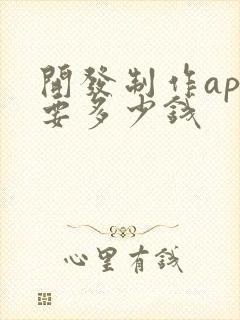 開發制作ap
要多少錢
心里有錢